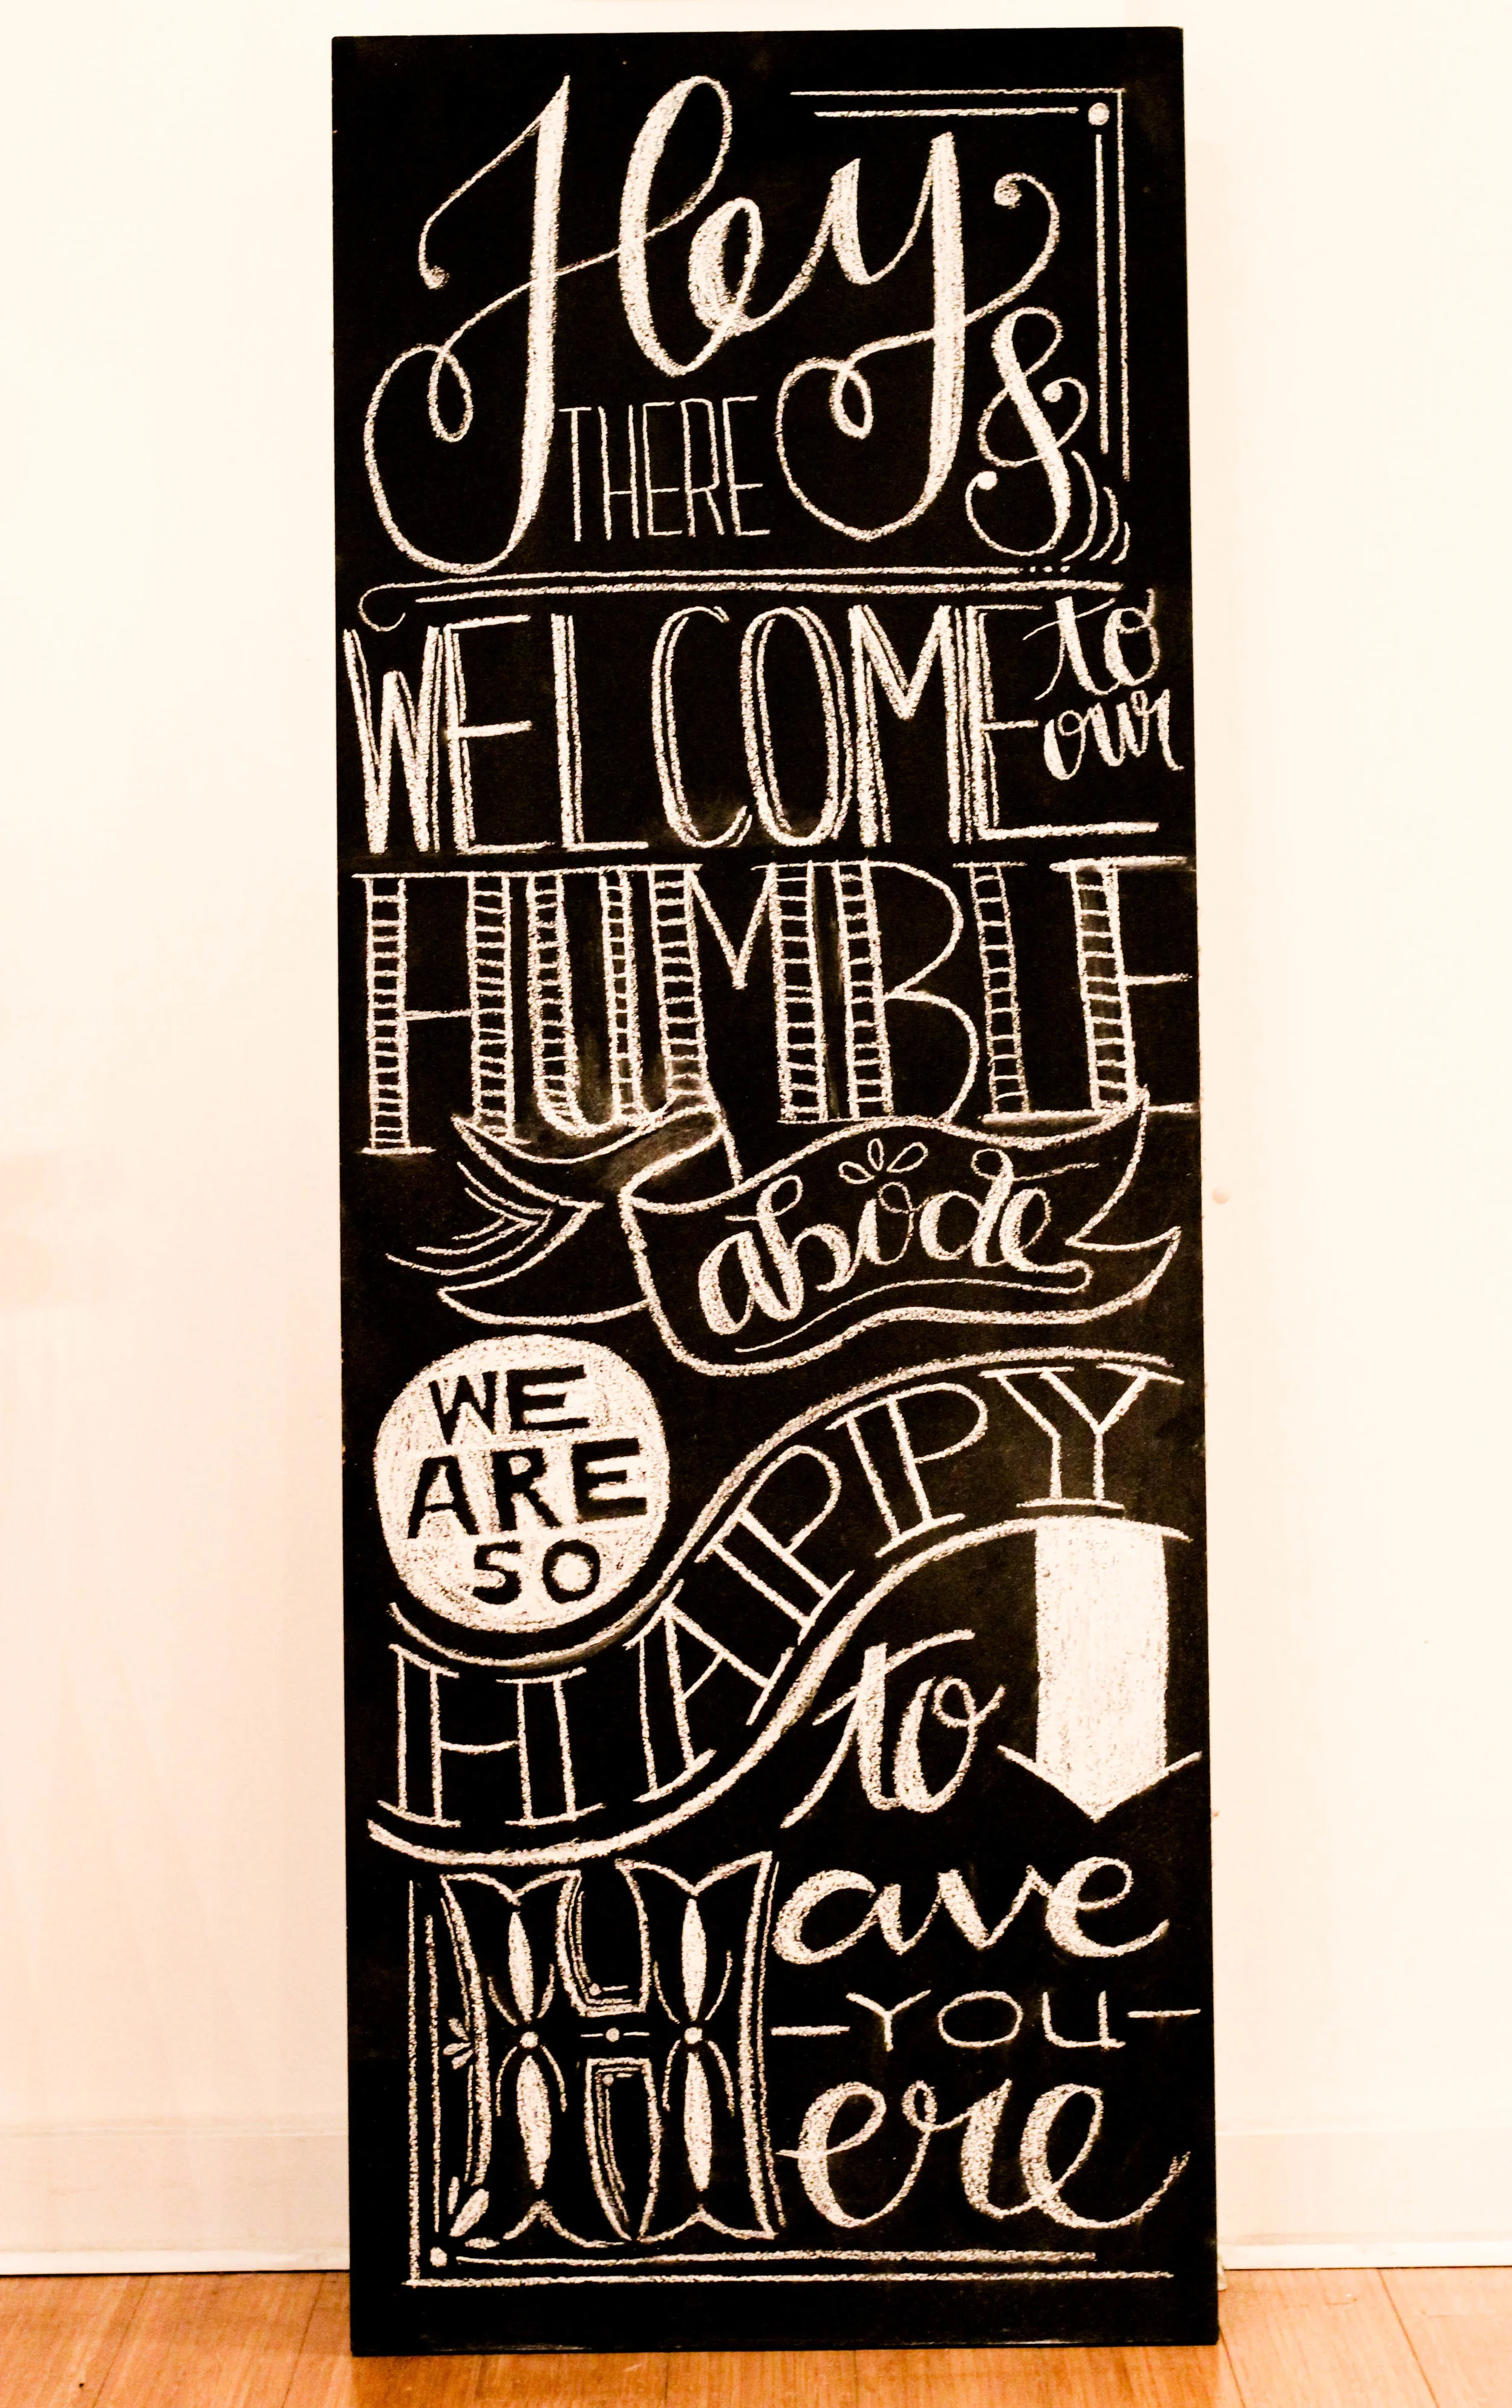 Hey
THERE &
WELCOME to
our
HUMBLE
abode
WE
ARE
SO
HAPPY
to
Have
-YOU-
Here